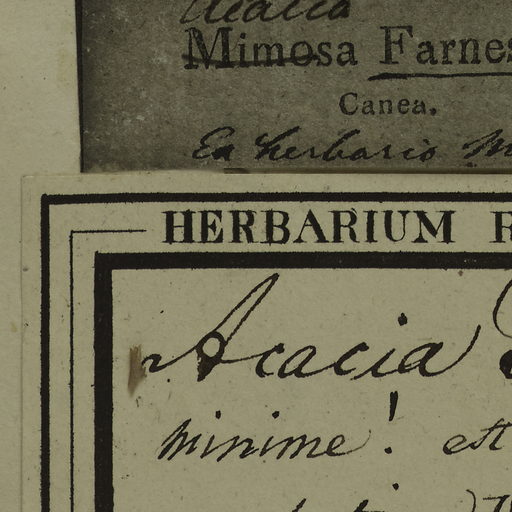 Acacia
Mimosa Farnes
Canea.
Ex herbario M
HERBARIUM R
Acacia
minime! est